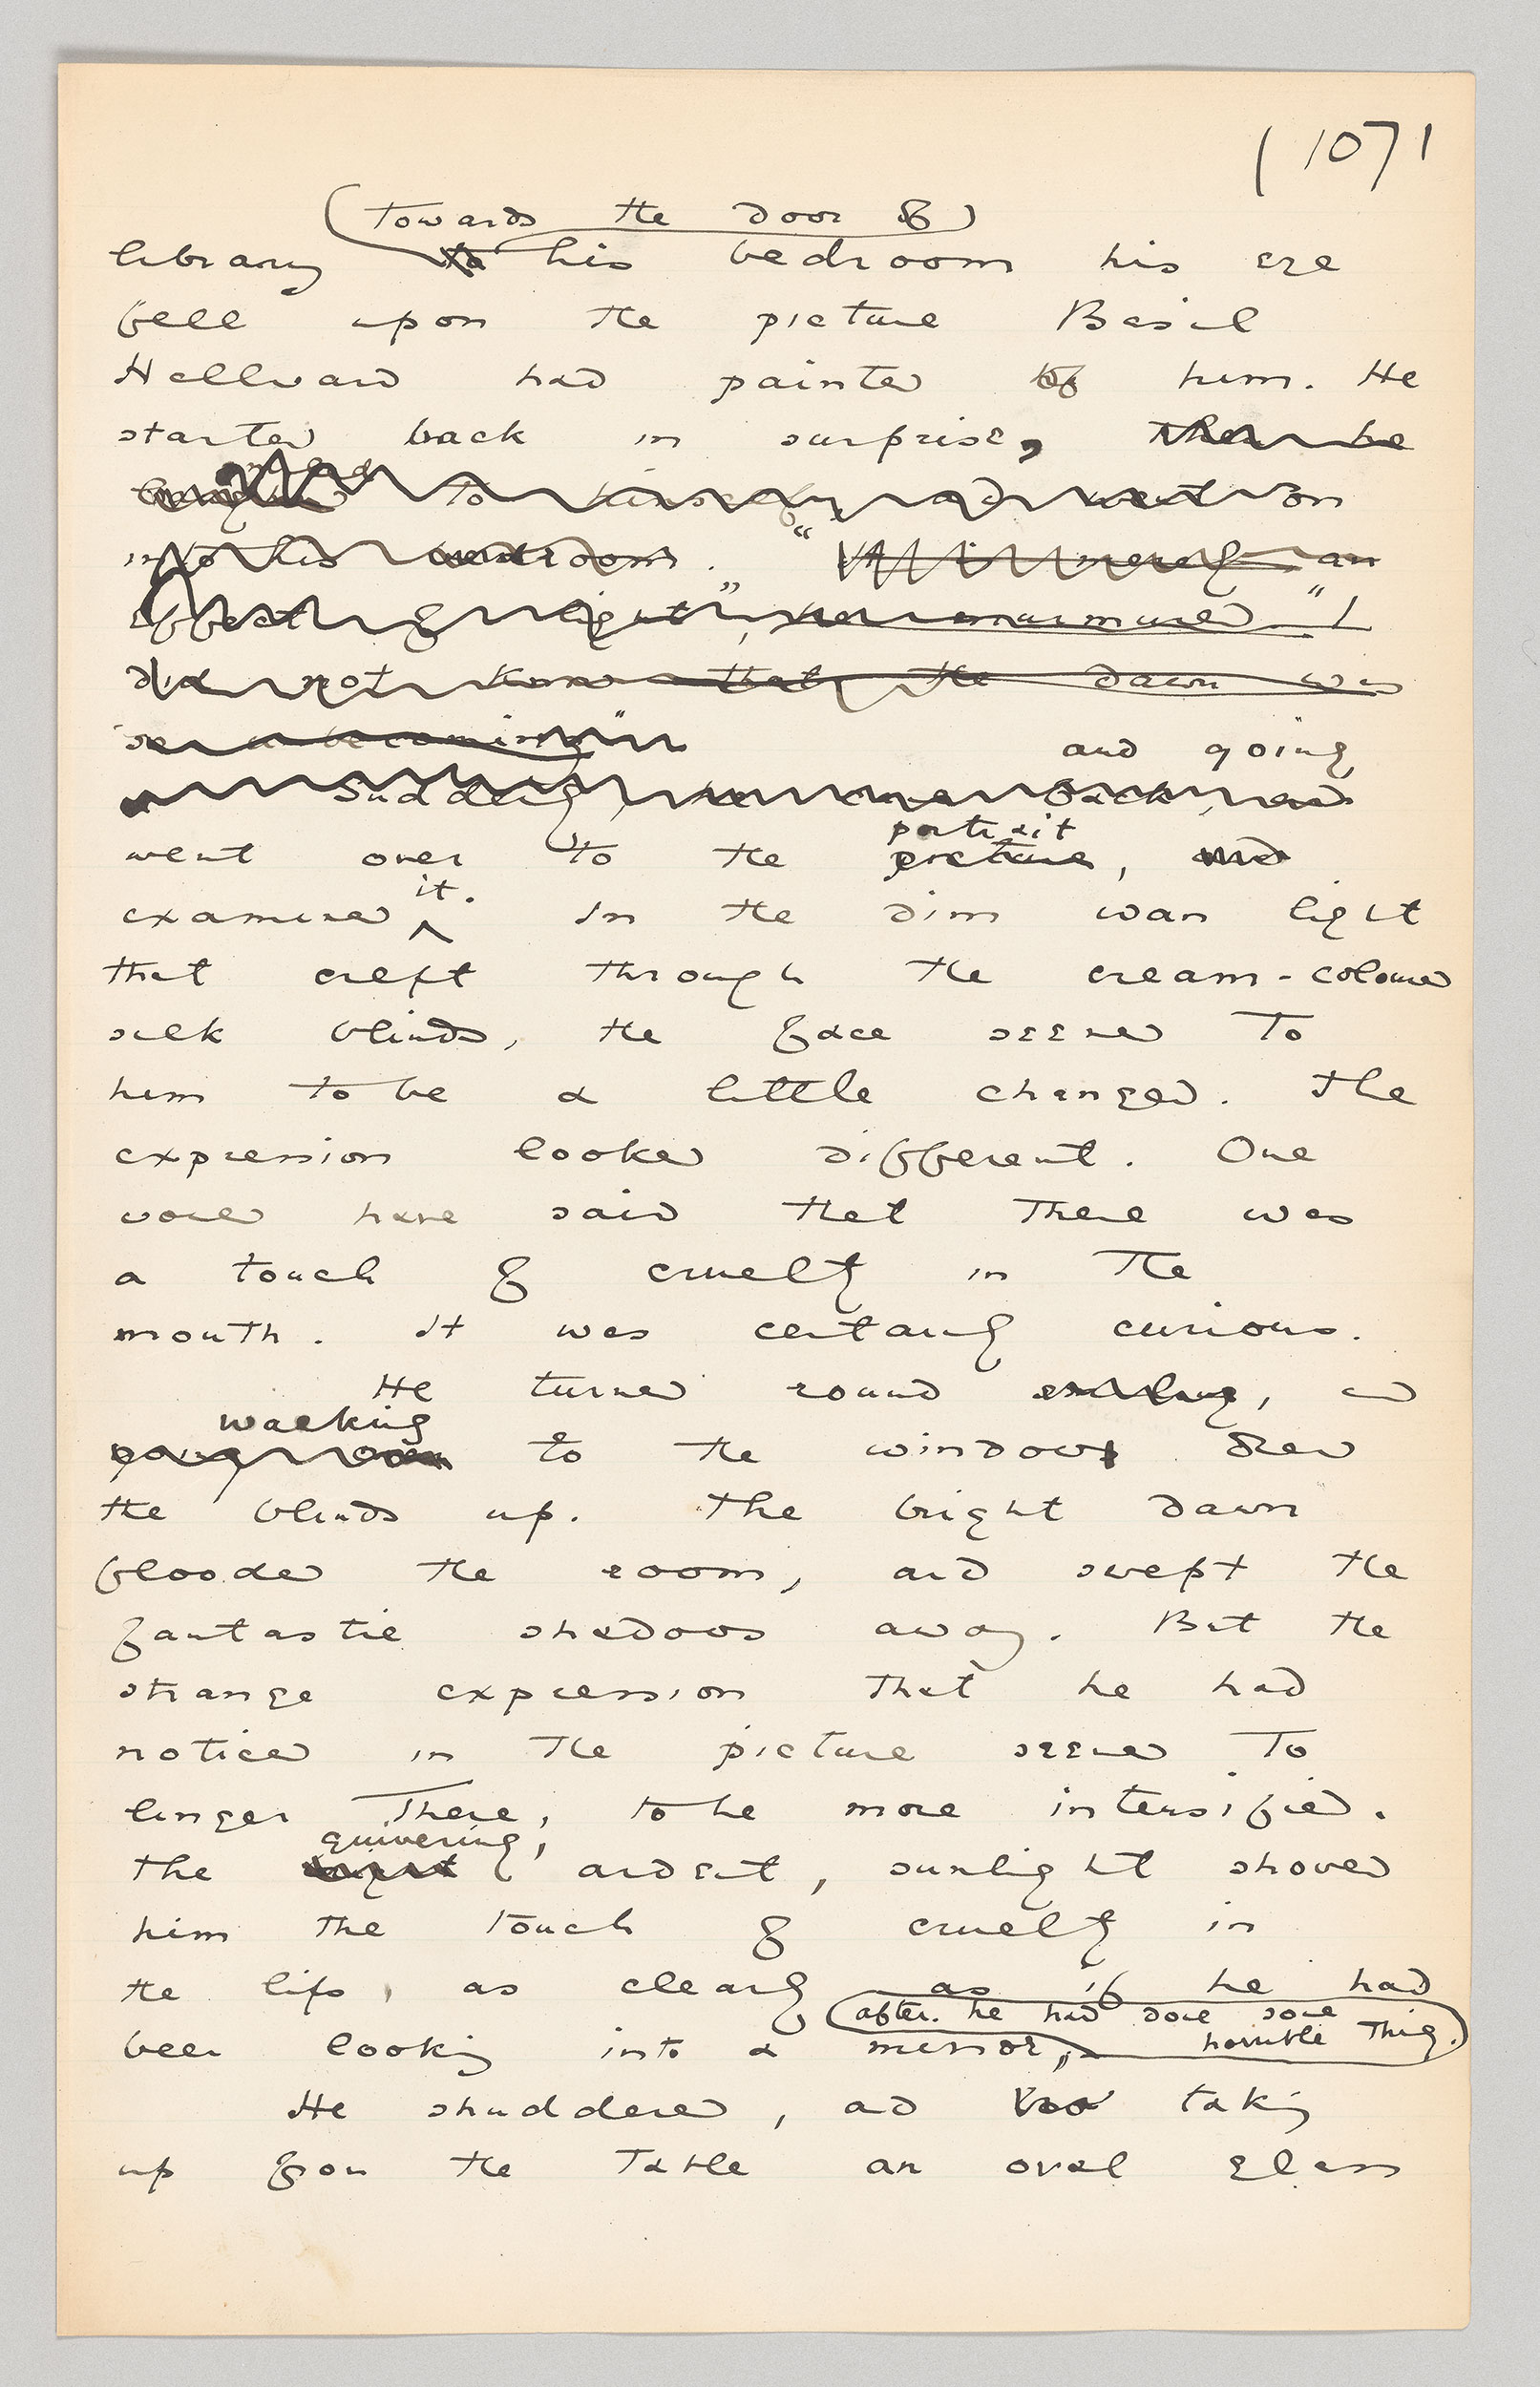 (107)
(towards the door of)
library to his bedroom his eye
fell upon the picture Basil
Hallward had painted of him. He
started back in surprise, then he
to himself, and went on
into his bedroom. " It is merely an
effect of light", he murmured. "I
did not know that the dawn was
so becoming"
and going
Suddenly, he came back, and
went over to the picture, and
portrait
examined it. In the dim wan light
that crept through the cream-coloured
silk blinds, the face seemed to
him to be a little changed. The
expression looked different. One
would have said that there was
a touch of cruelty in the
mouth. It was certainly curious.
He turned round smiling, and
walking
going over to the window drew
the blinds up. The bright dawn
flooded the room, and swept the
fantastic shadows away. But the
strange expression that he had
noticed in the picture seemed to
linger there, to be more intensified.
quivering,
The ardent, sunlight showed
him the touch of cruelty in
the lips, as clearly as if he had
after he had done some
been looking into a mirror, horrible thing.
He shuddered, and taking
up from the table an oval glass